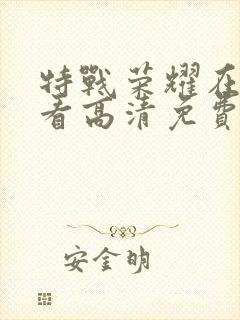 特戰荣耀在
看高清免費
安金明